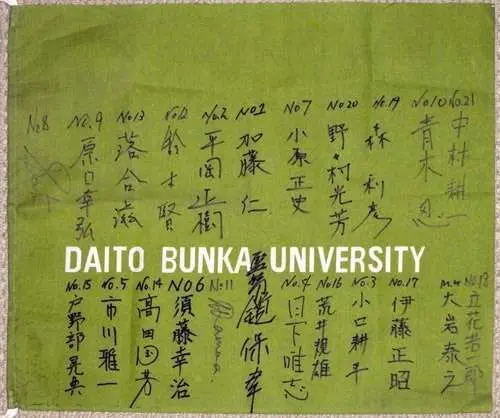 No.21 中村耕一
No.10 青木忍
No.19 森利彦
No.20 野々村光芳
No.7 小原正史
No.1 加藤仁
No.2 平岡正樹
No.12 鈴木賢
No.13 落合滋
No.9 原口幸弘
No.8
DAITO BUNKA UNIVERSITY
No.18 立花浩一郎
大岩泰之
No.17 伊藤正昭
No.3 小口耕平
No.16 荒井規雄
No.4 日下唯志
保幸
No.11
No6 須藤幸治
No.14 高田国芳
No.5 市川雅一
No.15 戸野部晃典